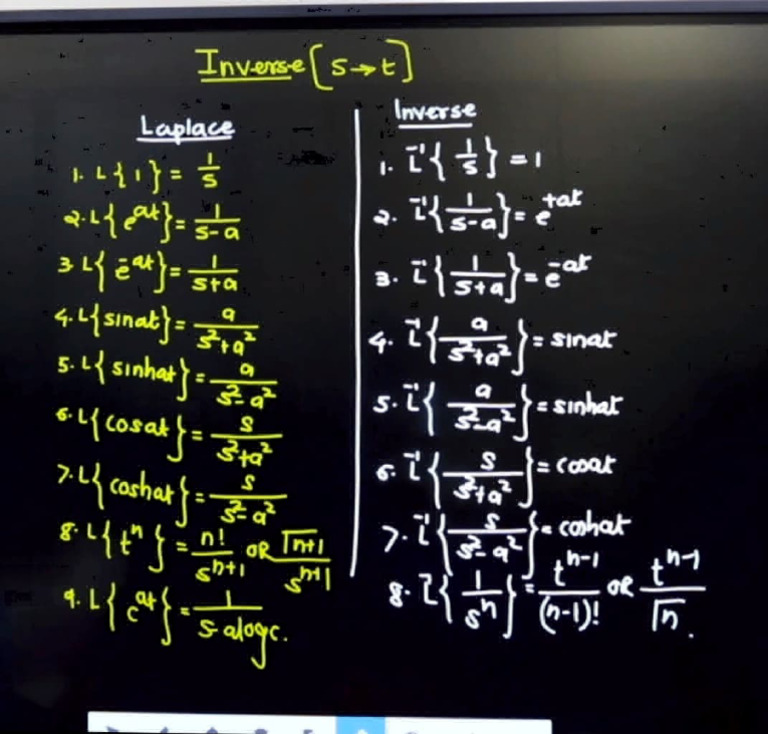 Inverse [s→t]
Laplace
1. L{1} = 1/s
2. L{e^at} = 1/(s-a)
3 L{e^-at} = 1/(s+a)
4. L{sinat} = a/(s²+a²)
5. L{sinhat} = a/(s²-a²)
6. L{cosat} = s/(s²+a²)
7. L{coshat} = s/(s²-a²)
8. L{t^n} = n!/s^(n+1) OR Γn+1/s^(n+1)
9. L{c^at} = 1/(s-alogc.
Inverse
1. L^-1{1/s} = 1
2. L^-1{1/(s-a)} = e^+at
3. L^-1{1/(s+a)} = e^-at
4. L^-1{a/(s²+a²)} = sinat
5. L^-1{a/(s²-a²)} = sinhat
6. L^-1{s/(s²+a²)} = cosat
7. L^-1{s/(s²-a²)} = coshat
8. L^-1{1/s^n} = t^(n-1)/(n-1)! OR t^(n-1)/Γn.